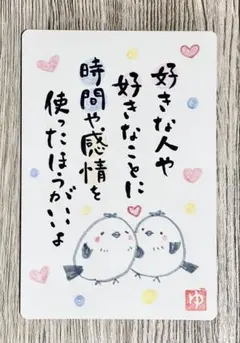 好きな人や
好きなことに
時間や感情を
使ったほうがいいよ
ゆ